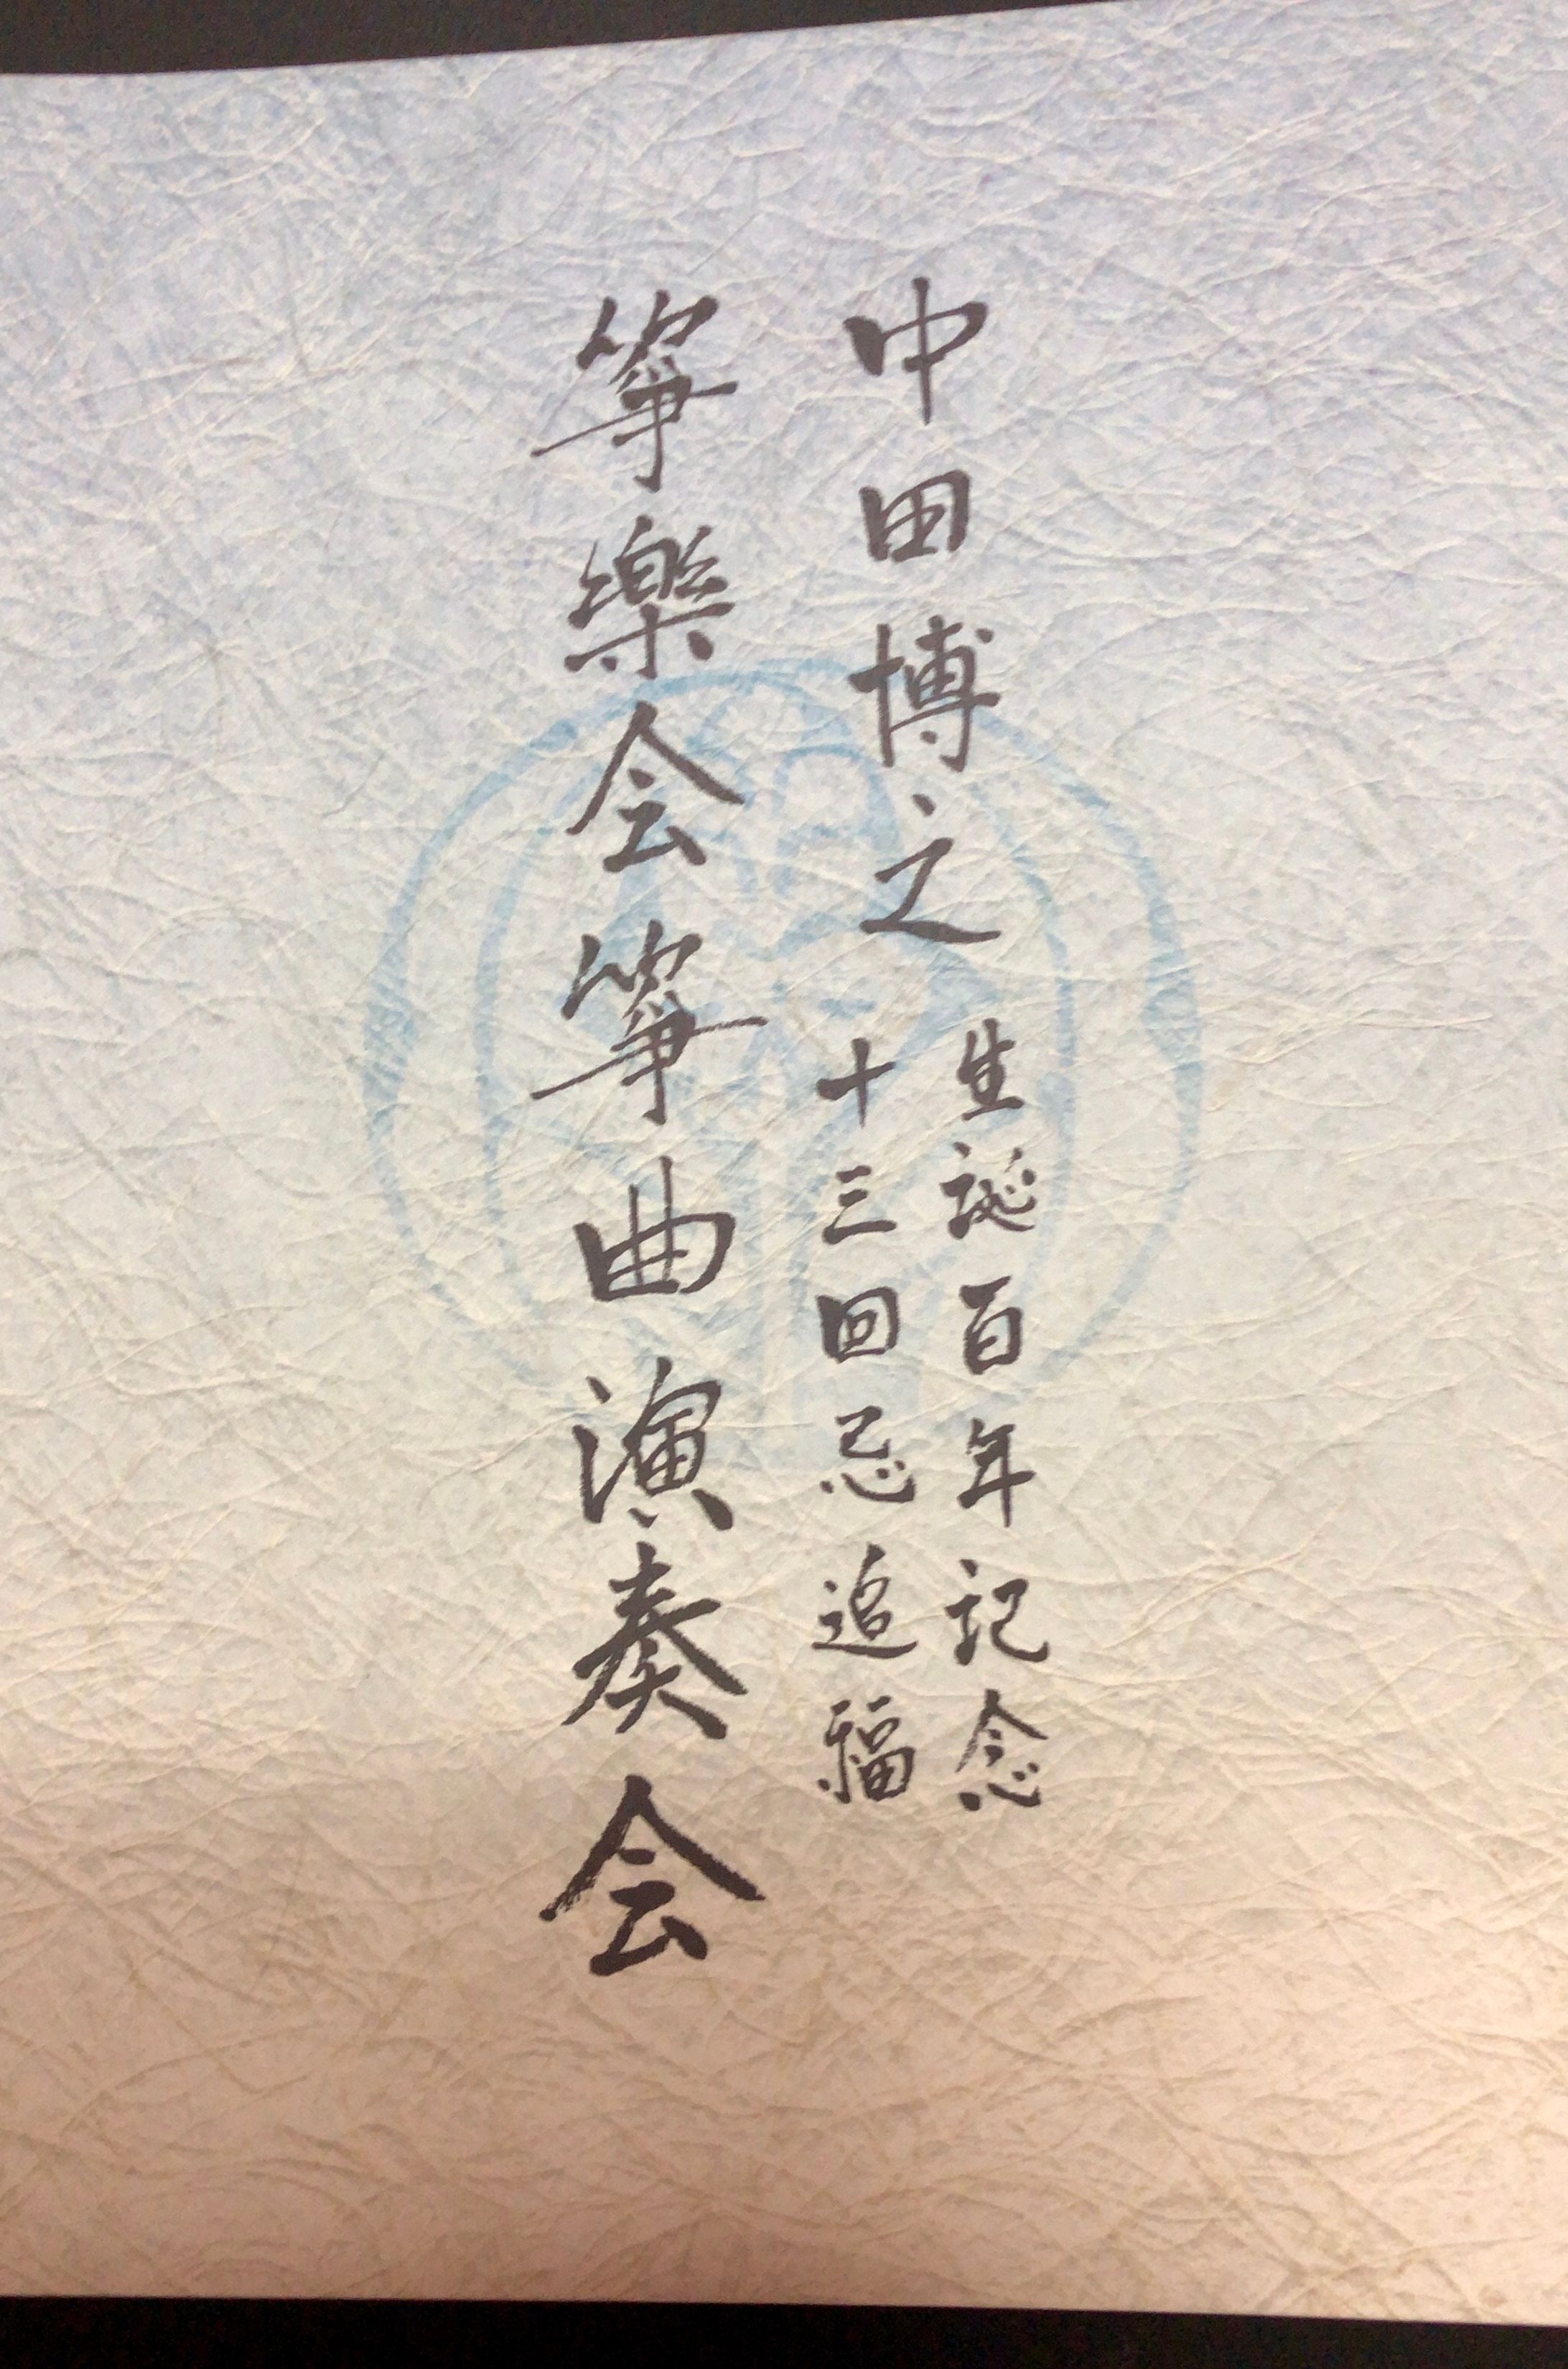 中田博之
生誕百年記念
十三回忌追福
箏樂会箏曲演奏会